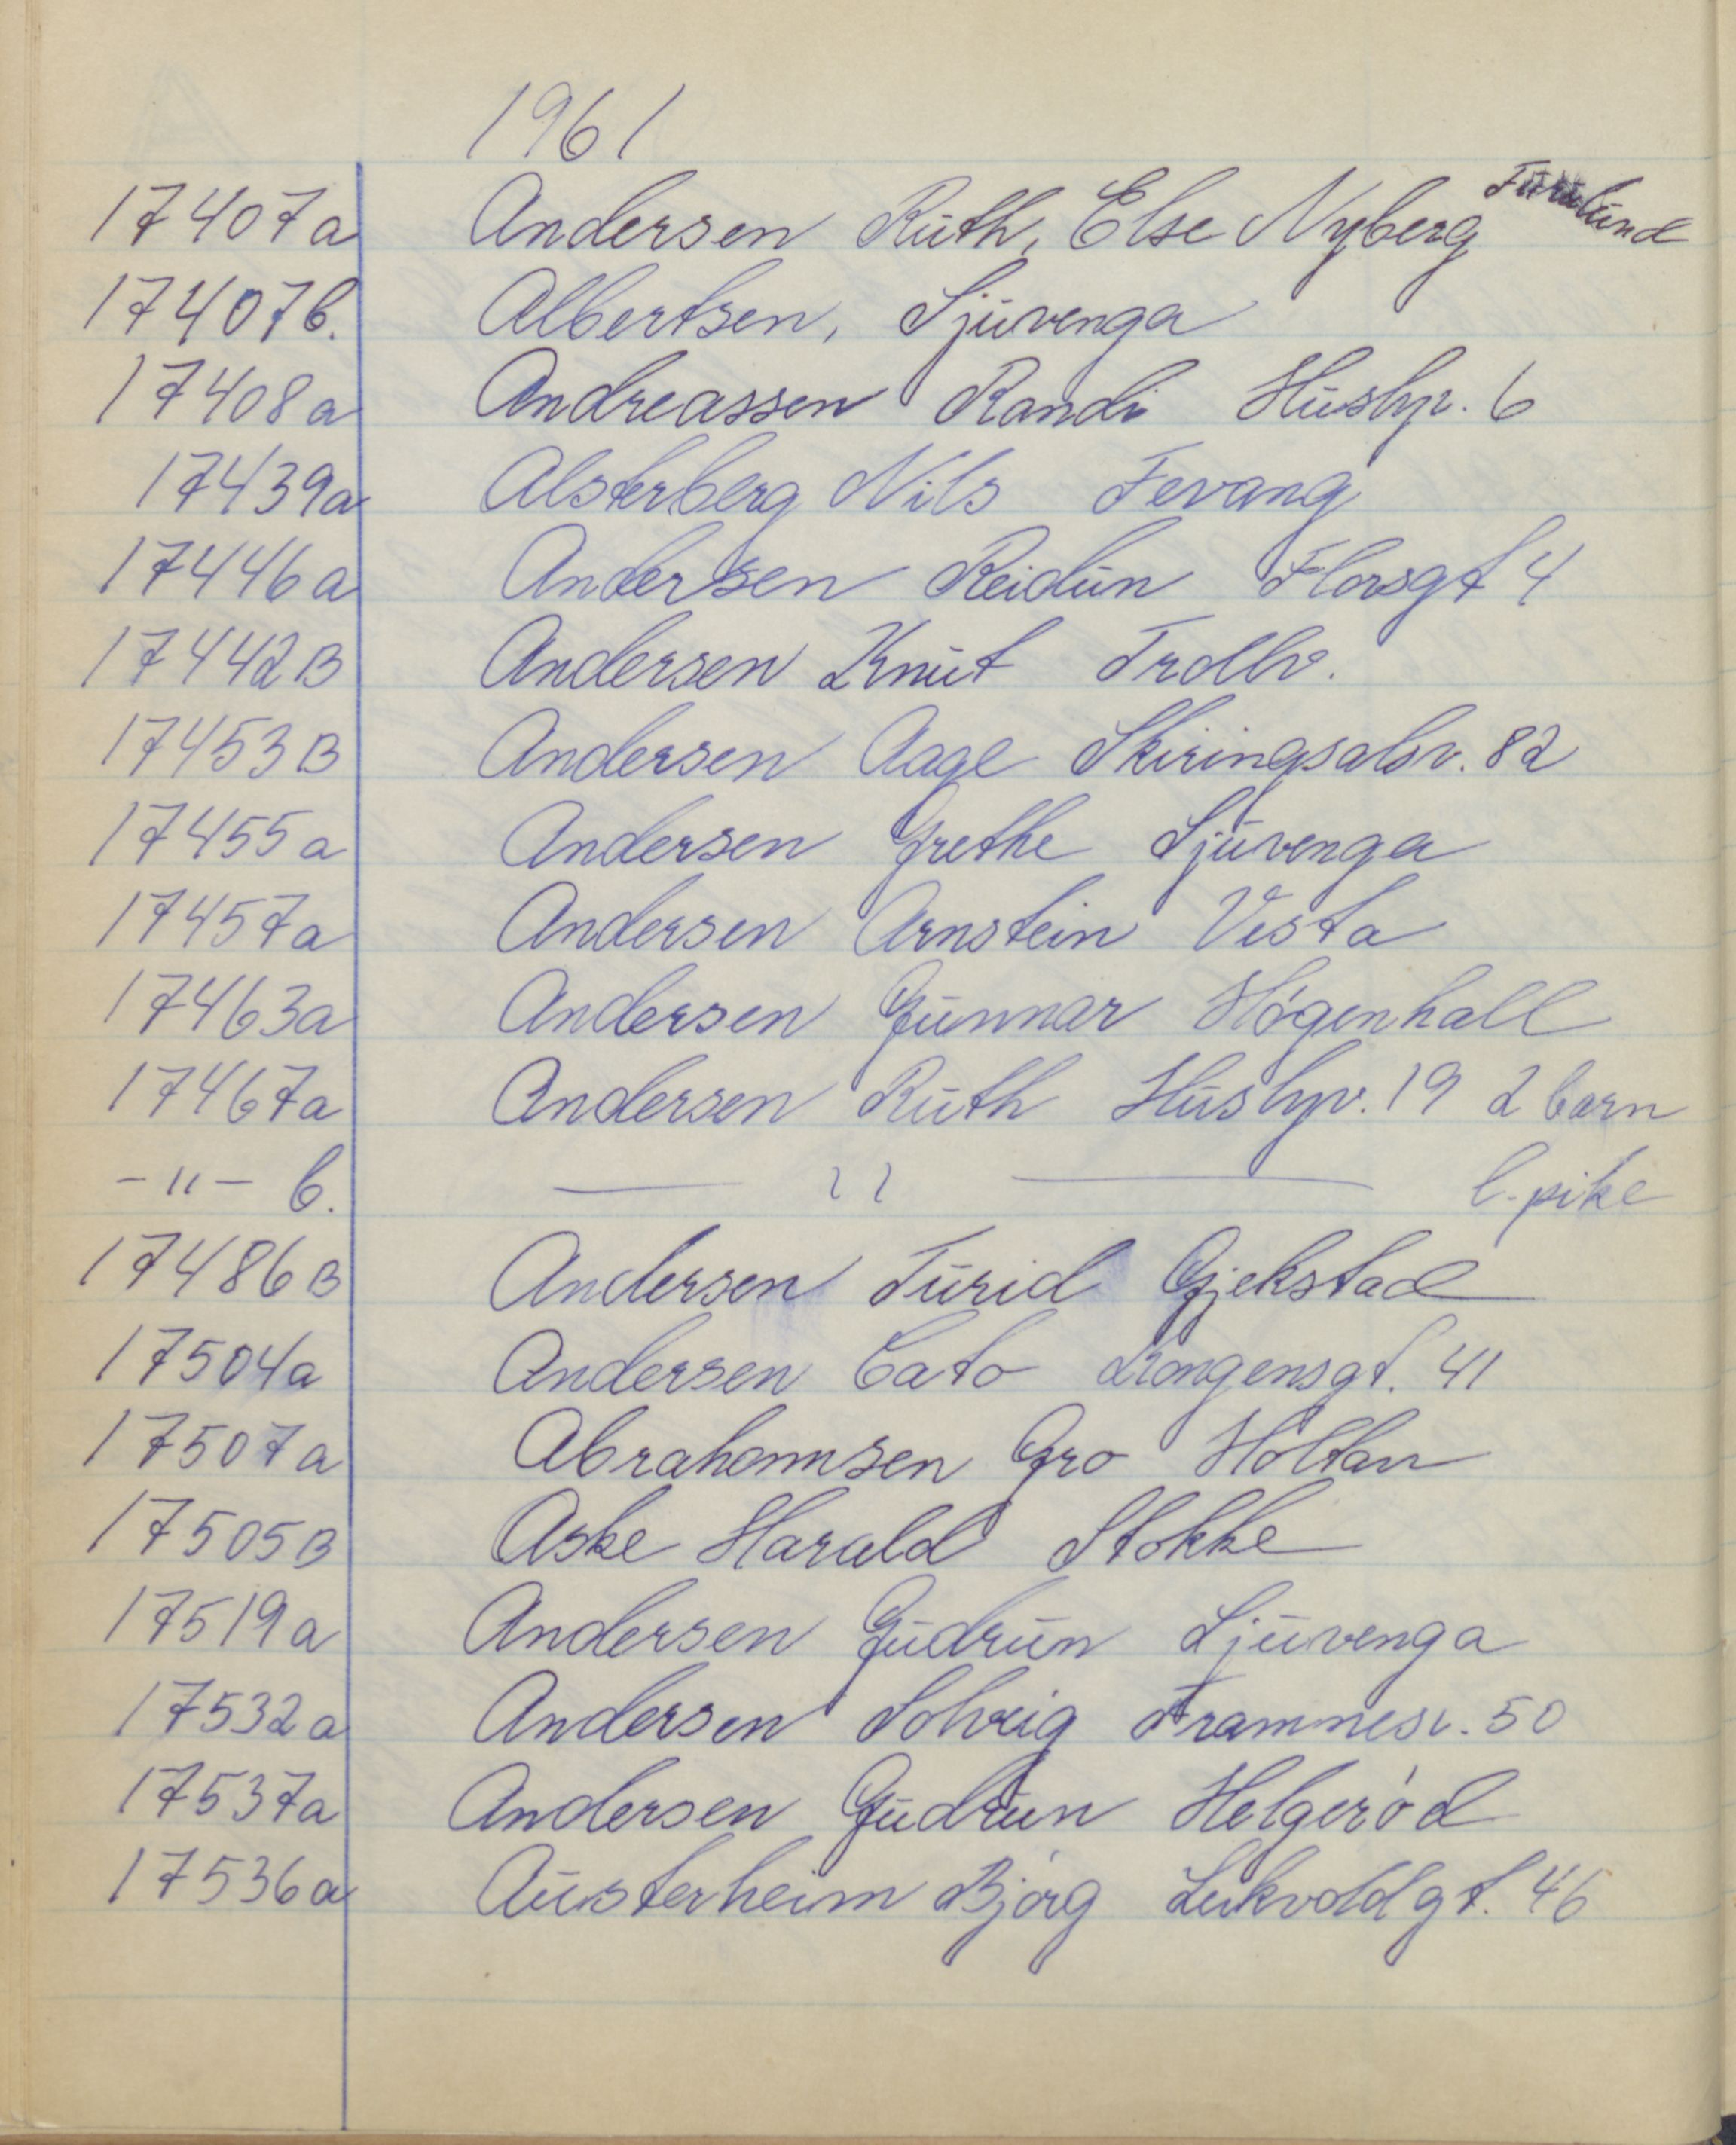 1961
17407a Andersen Ruth, Else Nyberg Furulund
17407b. Albertsen, Ljuvenga
17408a Andreassen Randi Husbyv. 6
17439a Alsterberg Nils Fevang
17446a Andersen Reidun Florsgt 4
17442B Andersen Knut Trollv.
17453B Andersen Aage Skiringsalsv. 82
17455a Andersen Grethe Ljuvenga
17457a Andersen Arnstein Vesta
17463a Andersen Gunnar Høgenhall
17467a Andersen Ruth Husbyv. 19 2 barn
-"- b. — " — l. pike
17486B Andersen Turid Gjekstad
17504a Andersen Cato Kongensgt. 41
17507a Abrahamsen Gro Holtan
17505B Aske Harald Stokke
17519a Andersen Gudrun Ljuvenga
17532a Andersen Solveig Framnesv. 50
17537a Andersen Gudrun Helgerød
17536a Austerheim Bjørg Leikvoldgt. 46